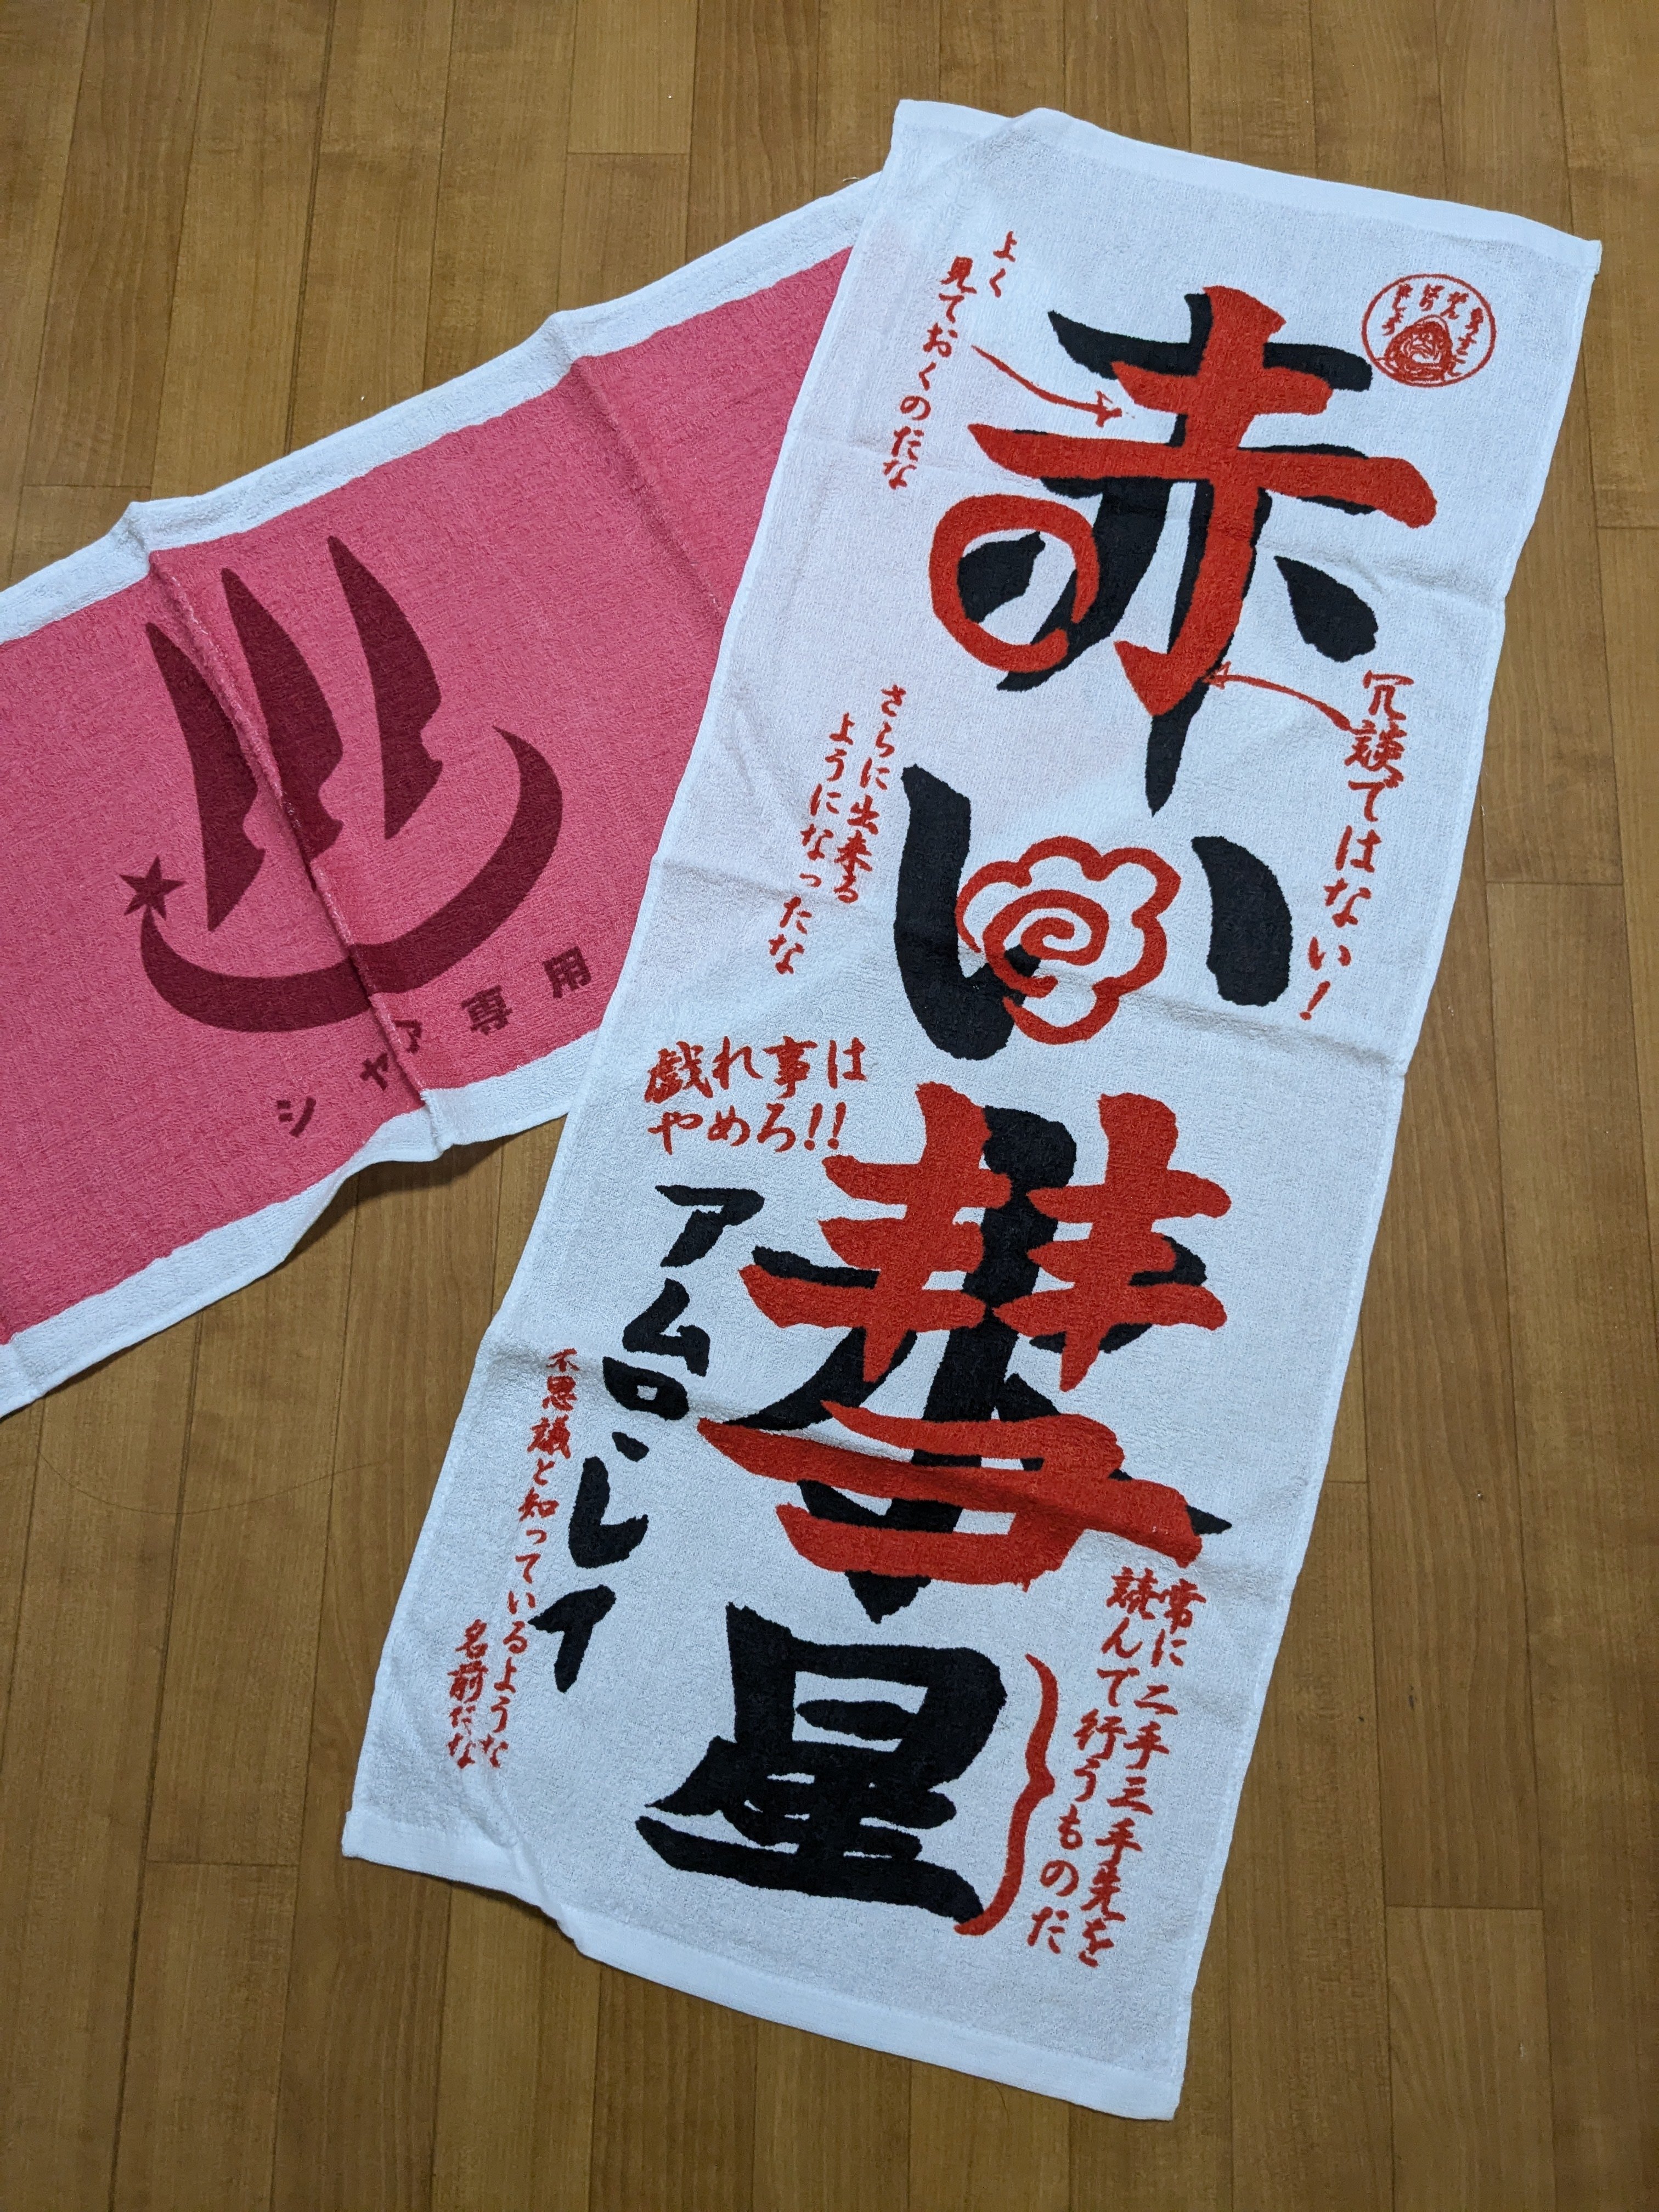 赤い彗星
よく
見ておくのだな
冗談ではない!
さらに出来る
ようになったな
戯れ事は
やめろ!!
アムロ・レイ
不思議と知っているような
名前だな
常に二手三手先を
読んで行うものだ
シャア専用